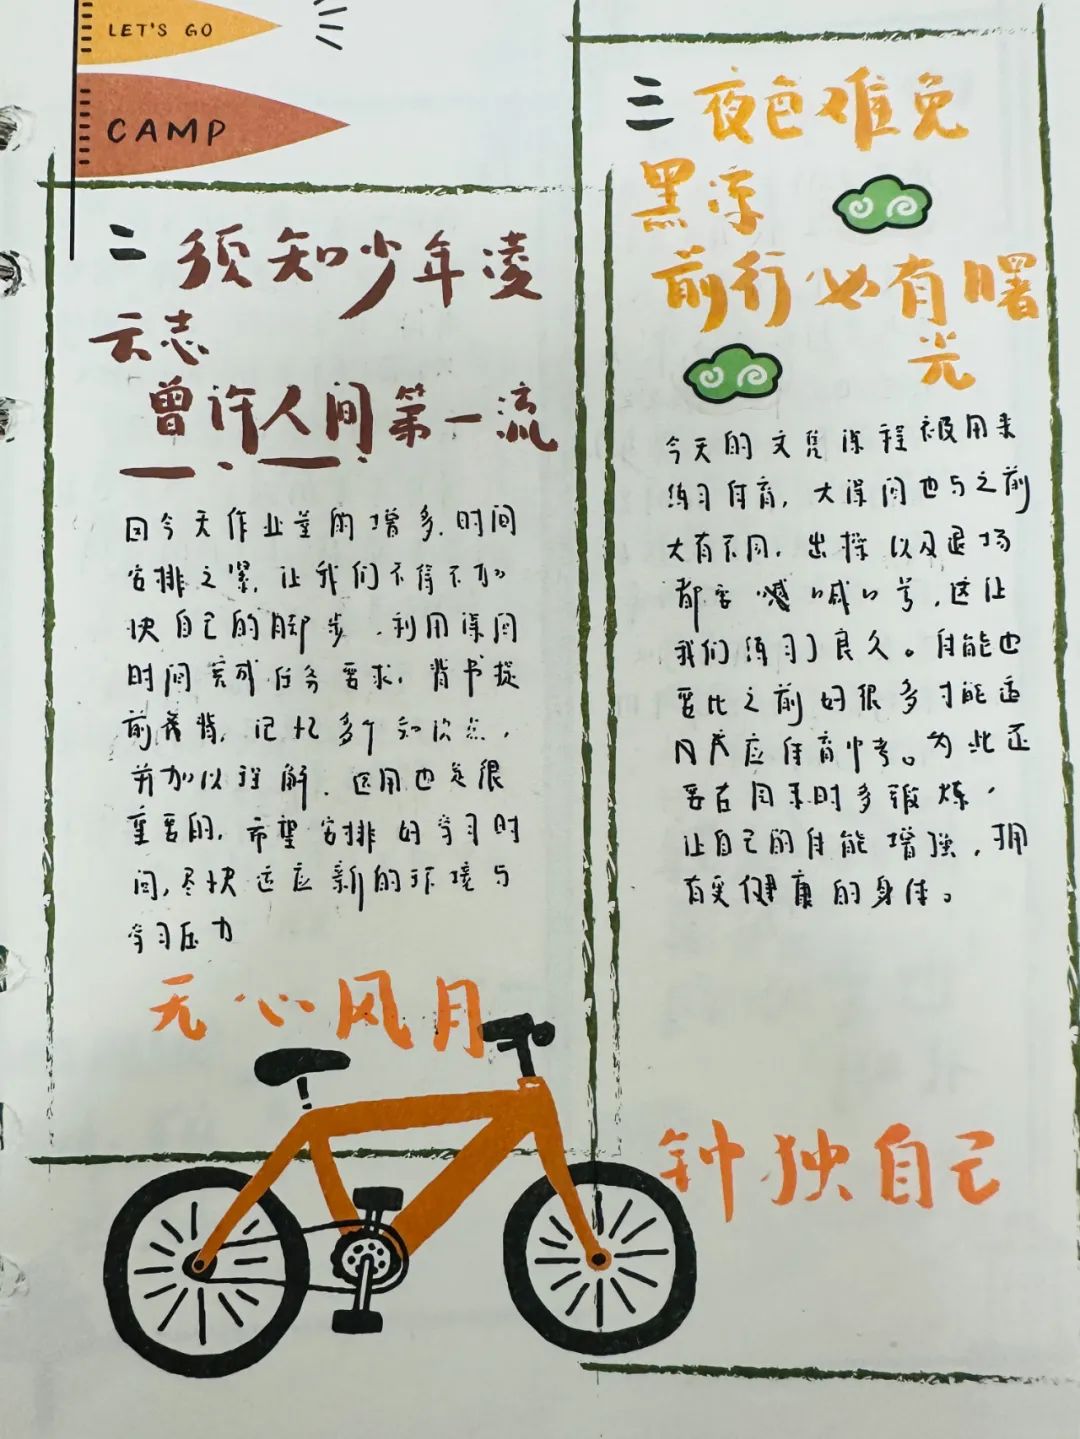 LET'S GO
CAMP
二 须知少年凌
云志
曾许人间第一流
因今天作业量的增多,时间
安排之紧,让我们不得不加
快自己的脚步,利用课间
时间完成任务要求,背书提
前背,记忆多个知识点,
并加以理解,运用也是很
重要的,希望安排好学习时
间,尽快适应新的环境与
学习压力
无心风月
三 夜色难免
黑凉
前行必有曙
光
今天的文凭课程被用来
练习体育,大课间也与之前
大有不同,出操以及退场
都要喊口号,这让
我们练习了良久。体能也
要比之前好很多才能适
应体育中考。为此还
要在周末时多锻炼,
让自己的体能增强,拥
有更健康的身体。
钟独自己